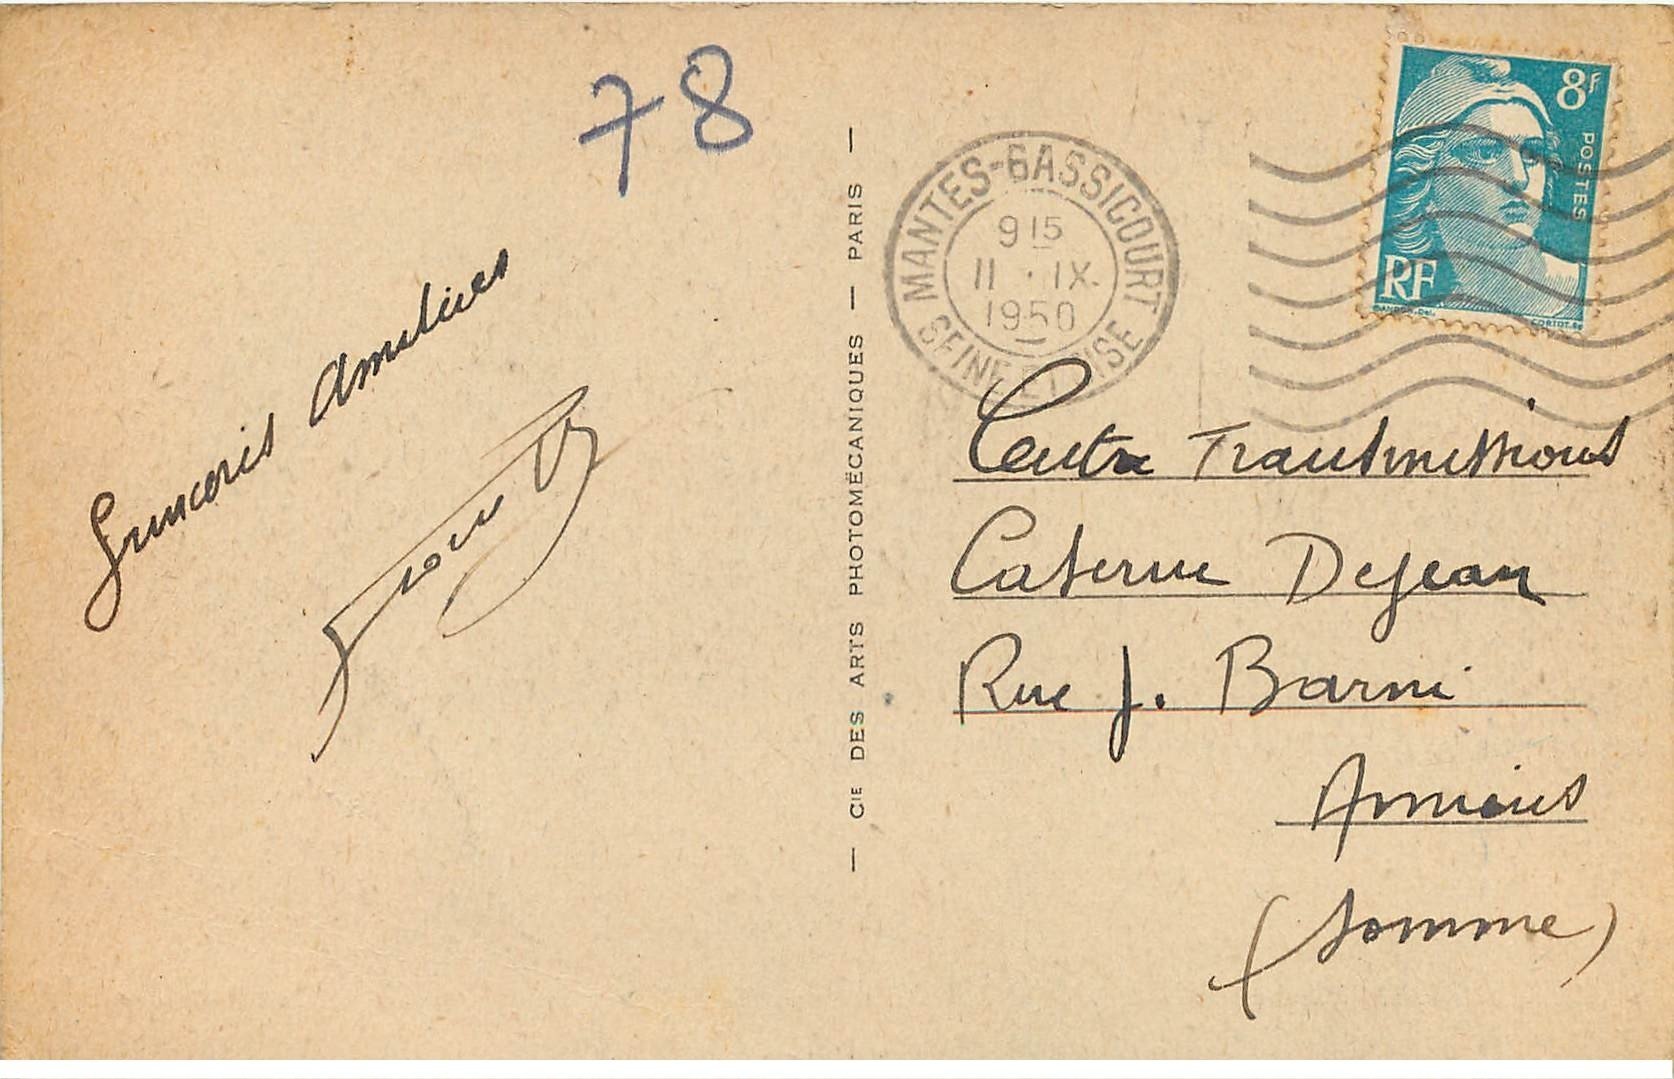 78
Sincères Amitiés
— CIE DES ARTS PHOTOMÉCANIQUES — PARIS —
MANTES-GASSICOURT
9 15
11 · IX.
1950
SEINE ET OISE
8F
POSTES
RF
GANDON. Del.
CORTOT. Sc
Centre Transmissions
Caserne Dejean
Rue J. Barni
Amiens
(Somme)